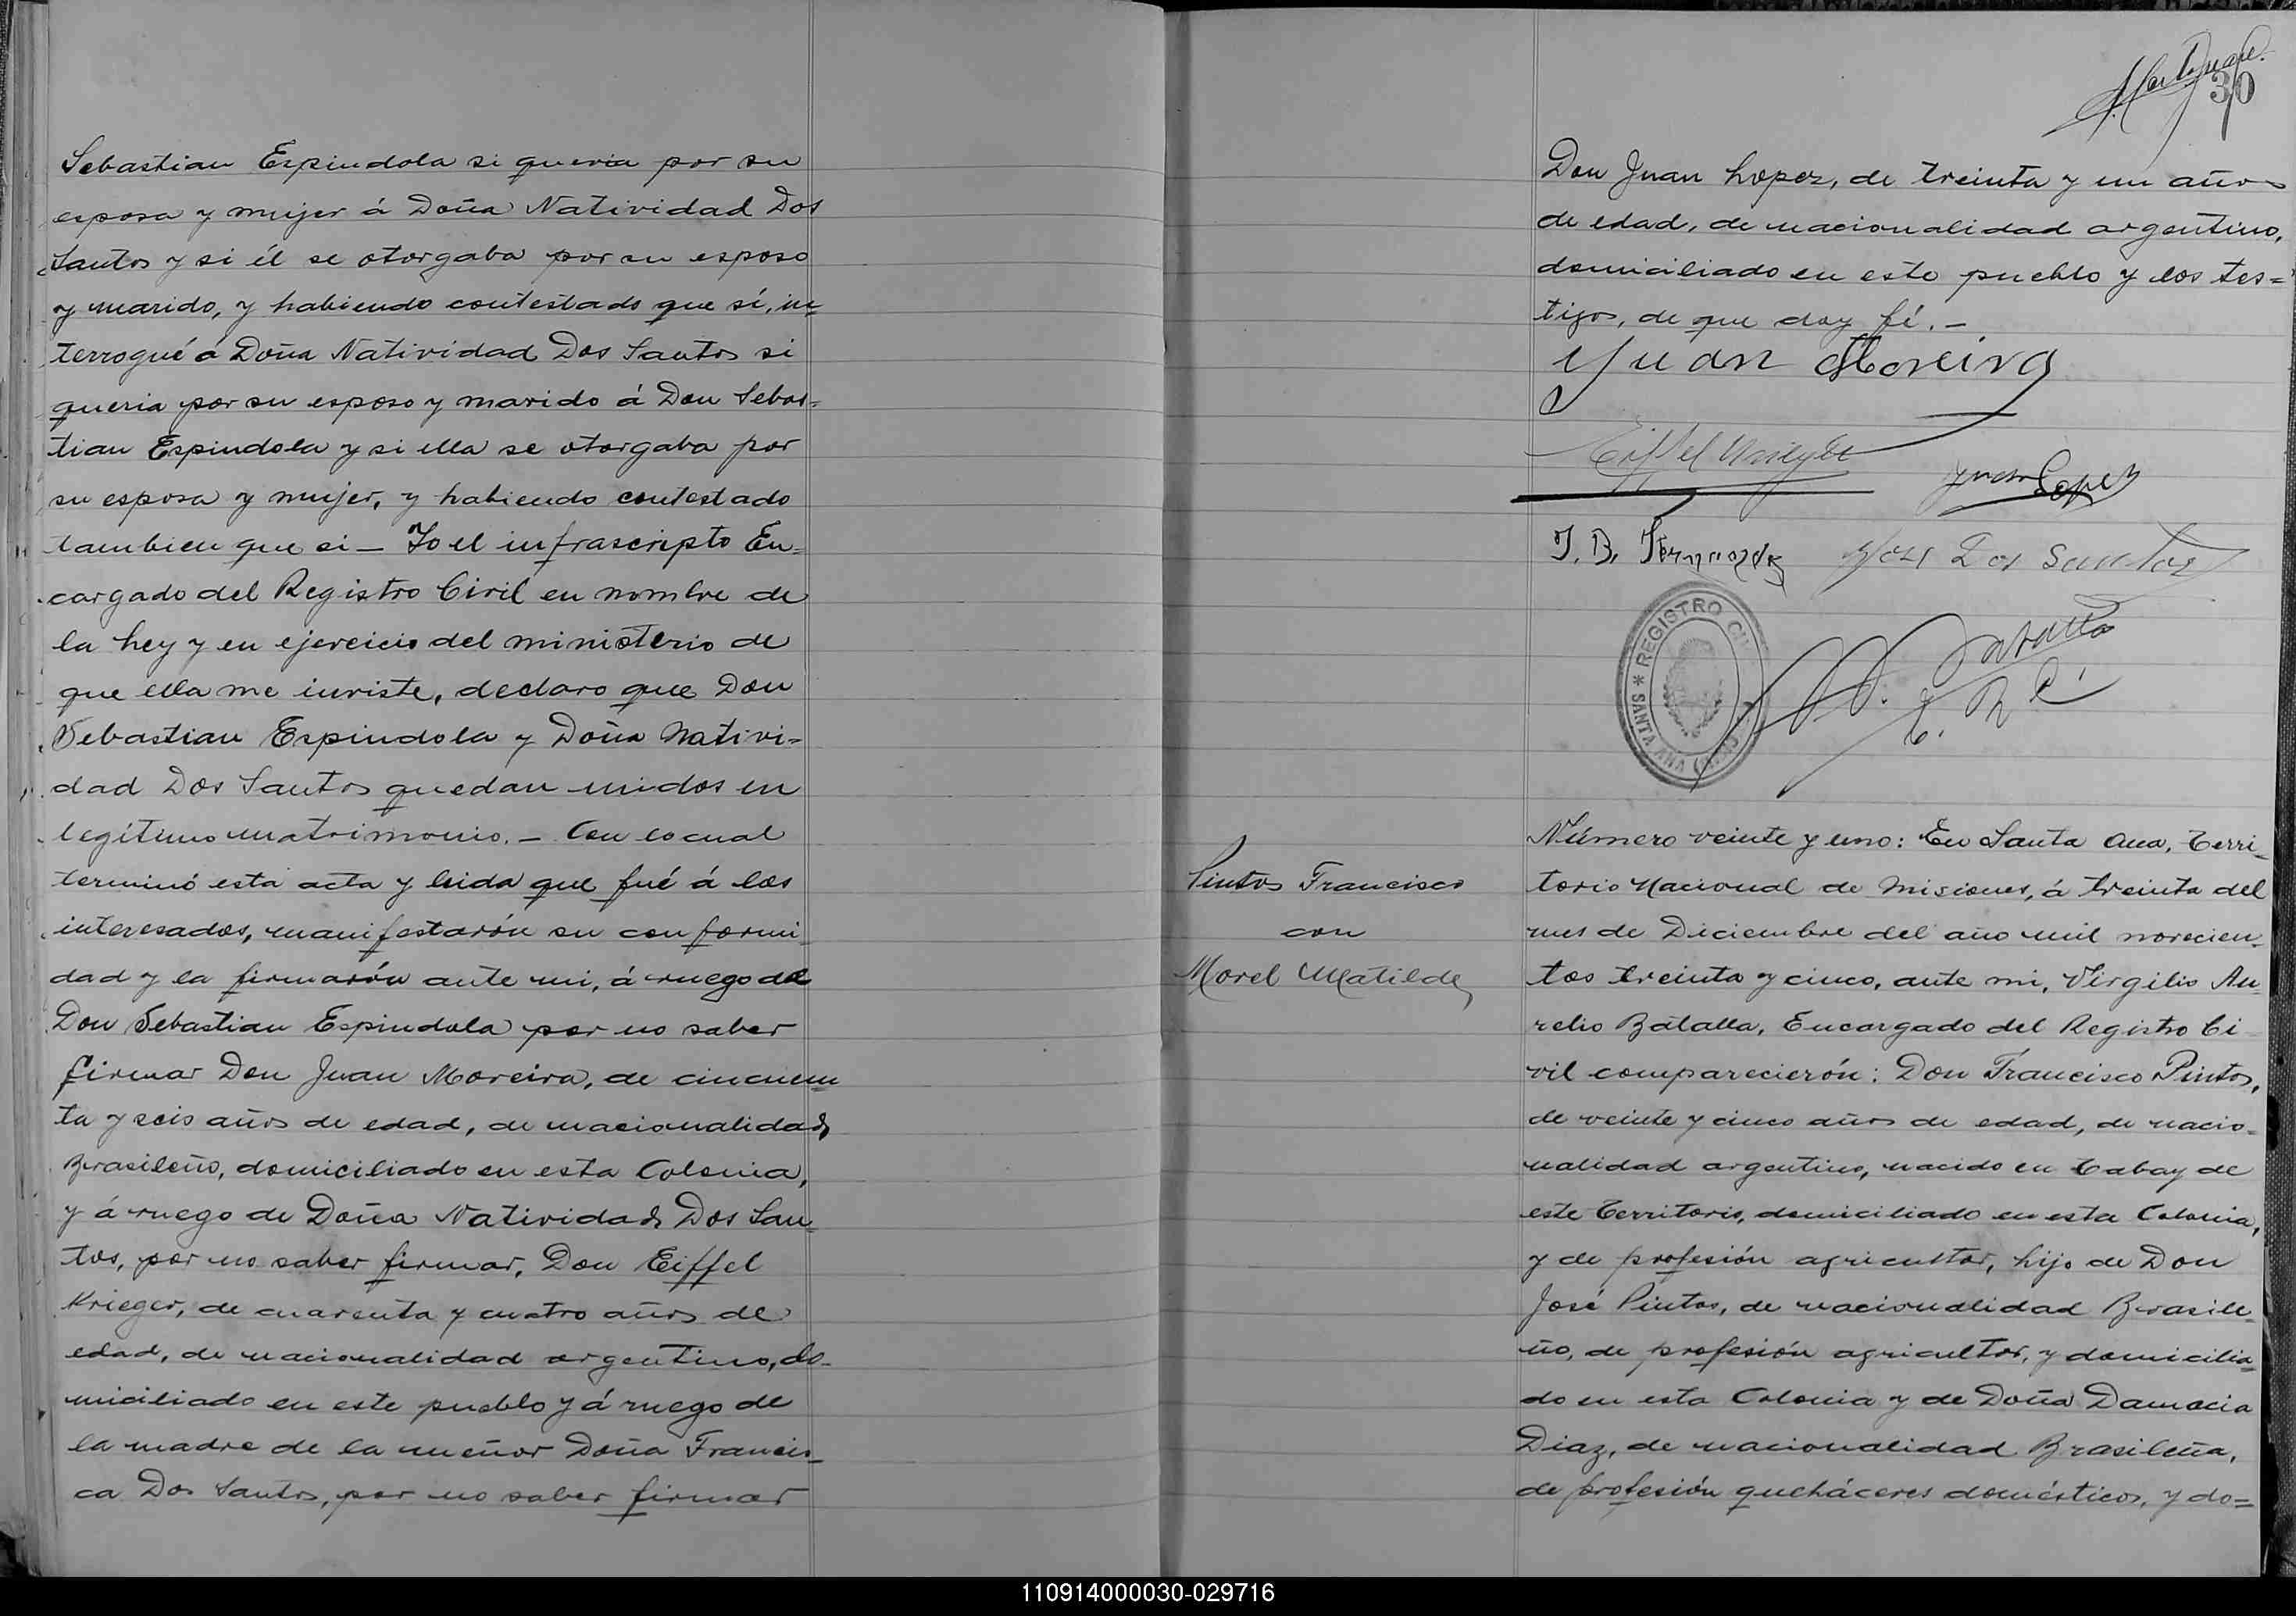 Sebastian Espindola si queria por su
esposa y mujer á Doña Natividad Dos
Santos y si él se otorgaba por su esposo
y marido, y habiendo contestado que sí, in=
terrogué á Doña Natividad Dos Santos si
queria por su esposo y marido á Don Sebas=
tian Espindola y si ella se otorgaba por
su esposa y mujer, y habiendo contestado
tambien que si — Yo el infrascripto En=
cargado del Registro Civil en nombre de
la Ley y en ejercicio del ministerio de
que ella me inviste, declaro que Don
Sebastian Espindola y Doña Nativi=
dad Dos Santos quedan unidos en
legítimo matrimonio. — Con lo cual
terminó esta acta y leida que fué á los
interesados, manifestarón su conformi_
dad y la firmarón ante mi, á ruego de
Don Sebastian Espindola por no saber
firmar Don Juan Moreira, de cincuen=
ta y seis años de edad, de nacionalidad
Brasileño, domiciliado en esta Colonia,
y á ruego de Doña Natividad Dos San_
tos, por no saber firmar, Don Eiffel
Krieger, de cuarenta y cuatro años de
edad, de nacionalidad argentino, do_
miciliado en este pueblo y á ruego de
la madre de la menor Doña Francis_
ca Dos Santos, por no saber firmar
30
Don Juan Lopez, de treinta y un años
de edad, de nacionalidad argentino,
domiciliado en este pueblo y los tes=
tigos, de que doy fé. —
Juan Moreira
Eiffel Krieger
Juan Lopez
J. B. Fernandez
José Dos Santos
V. A. Batalla
E. R. C.
* REGISTRO CIVIL * SANTA ANA
Pintos Francisco
con
Morel Matilde
Número veinte y uno: En Santa Ana, Terri_
torio Nacional de Misiones, á treinta del
mes de Diciembre del año mil novecien_
tos treinta y cinco, ante mi, Virgilio Au_
relio Batalla, Encargado del Registro Ci_
vil comparecierón: Don Francisco Pintos,
de veinte y cinco años de edad, de nacio=
nalidad argentino, nacido en Tabay de
este Territorio, domiciliado en esta Colonia,
y de profesión agricultor, hijo de Don
José Pintos, de nacionalidad Brasile_
ño, de profesión agricultor, y domicilia=
do en esta Colonia y de Doña Damacia
Diaz, de nacionalidad Brasileña,
de profesión queháceres domésticos, y do=
110914000030-029716